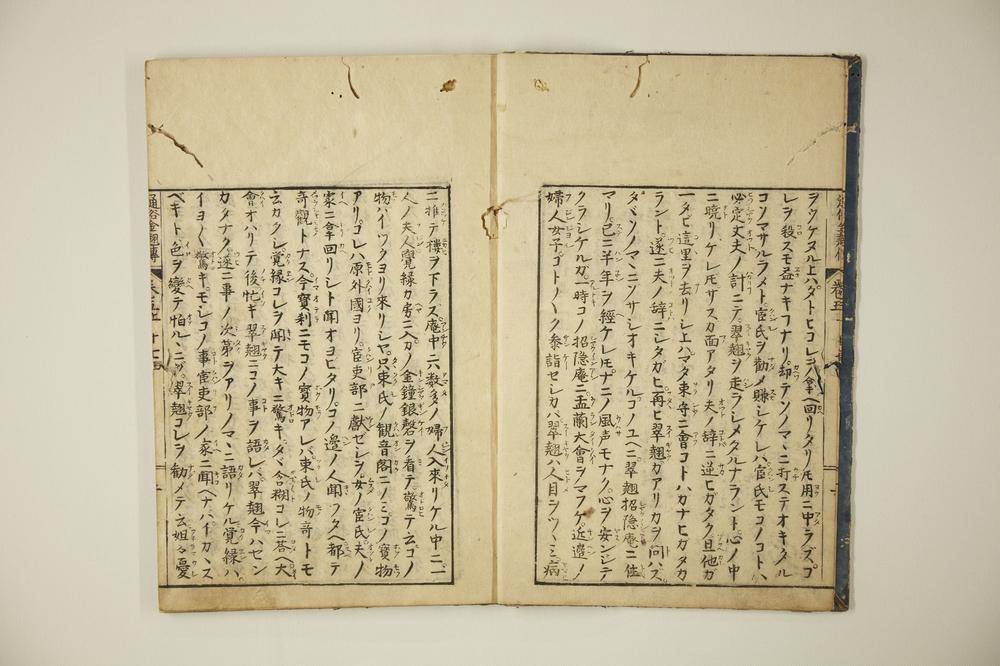 ヲツケヌル上ハタトヒコレヲ拿へ回リタリ𪜈用ニ中ラズコ
レヲ殺スモ益ナキコナリ却テソノマヽニ打ステオキタル
コソマサルラメト宦氏ヲ勸メ賺シケレハ宦氏モコノコト、
必定丈夫ノ計ニテ翠翹ヲ走ラシメタルナラント心ノ中
ニ曉リケレ𪜈サスカ面アタリ夫ノ辞ニ逆ヒガタク且他ガ
一タビ這里ヲ去リシ上ハマタ東寺ニ會コトハカナヒガタカ
ラント遂ニ夫ノ辞ニシタガヒ再ヒ翠翹ガアリカヲ問ハズ
タヾソノマヽニソサシオキケルコノユヘニ翠翹招隠庵ニ住
マリ已ニ半年ヲ經ケレ𪜈ナニノ風声モナク心ヲ安ンシテ
クラシケルカ一時コノ招隠庵ニ盂蘭大會ヲマフケ近邉ノ
婦人女子コト〱ク参詣セシカバ翠翹ハ人目ヲツヽミ病
ニ推テ樓ヲ下ラズ庵中ニ六数多ノ婦人入來リケル中ニ一
人ノ夫人覚縁カ房ニ入カノ金鐘銀磬ヲ看テ驚テ云コノ
物ハイツクヨリ來リシヤ只束氏ノ観音閣ニノミコノ寳物
アリコレハ原外國ヨリ宦吏部ニ獻ゼシヲ女ノ宦氏夫ノ
家ニ拿回リシト聞オヨヒタリコノ邉ノ人聞ツタへ都テ
奇觀トナス今寳刹ニモコノ寳物アレバ束氏ノ物竒トモ
云カタシ覚縁コレヲ聞テ大キニ驚キタヾ含糊コレニ荅大
會オハリテ後忙ギ翠翹ニコノ事ヲ語レバ翠翹今ハセン
カタナク遂ニ事ノ次第ヲアリノマヽニ語リケル覚縁ハ
イヨ〱驚キモシコノ事宦吏部ノ家ニ聞ヘナバイカヾス
ベキト色ヲ變テ怕ルヽニゾ翠翹コレヲ勧メテ云姐々憂
通俗金翹傳